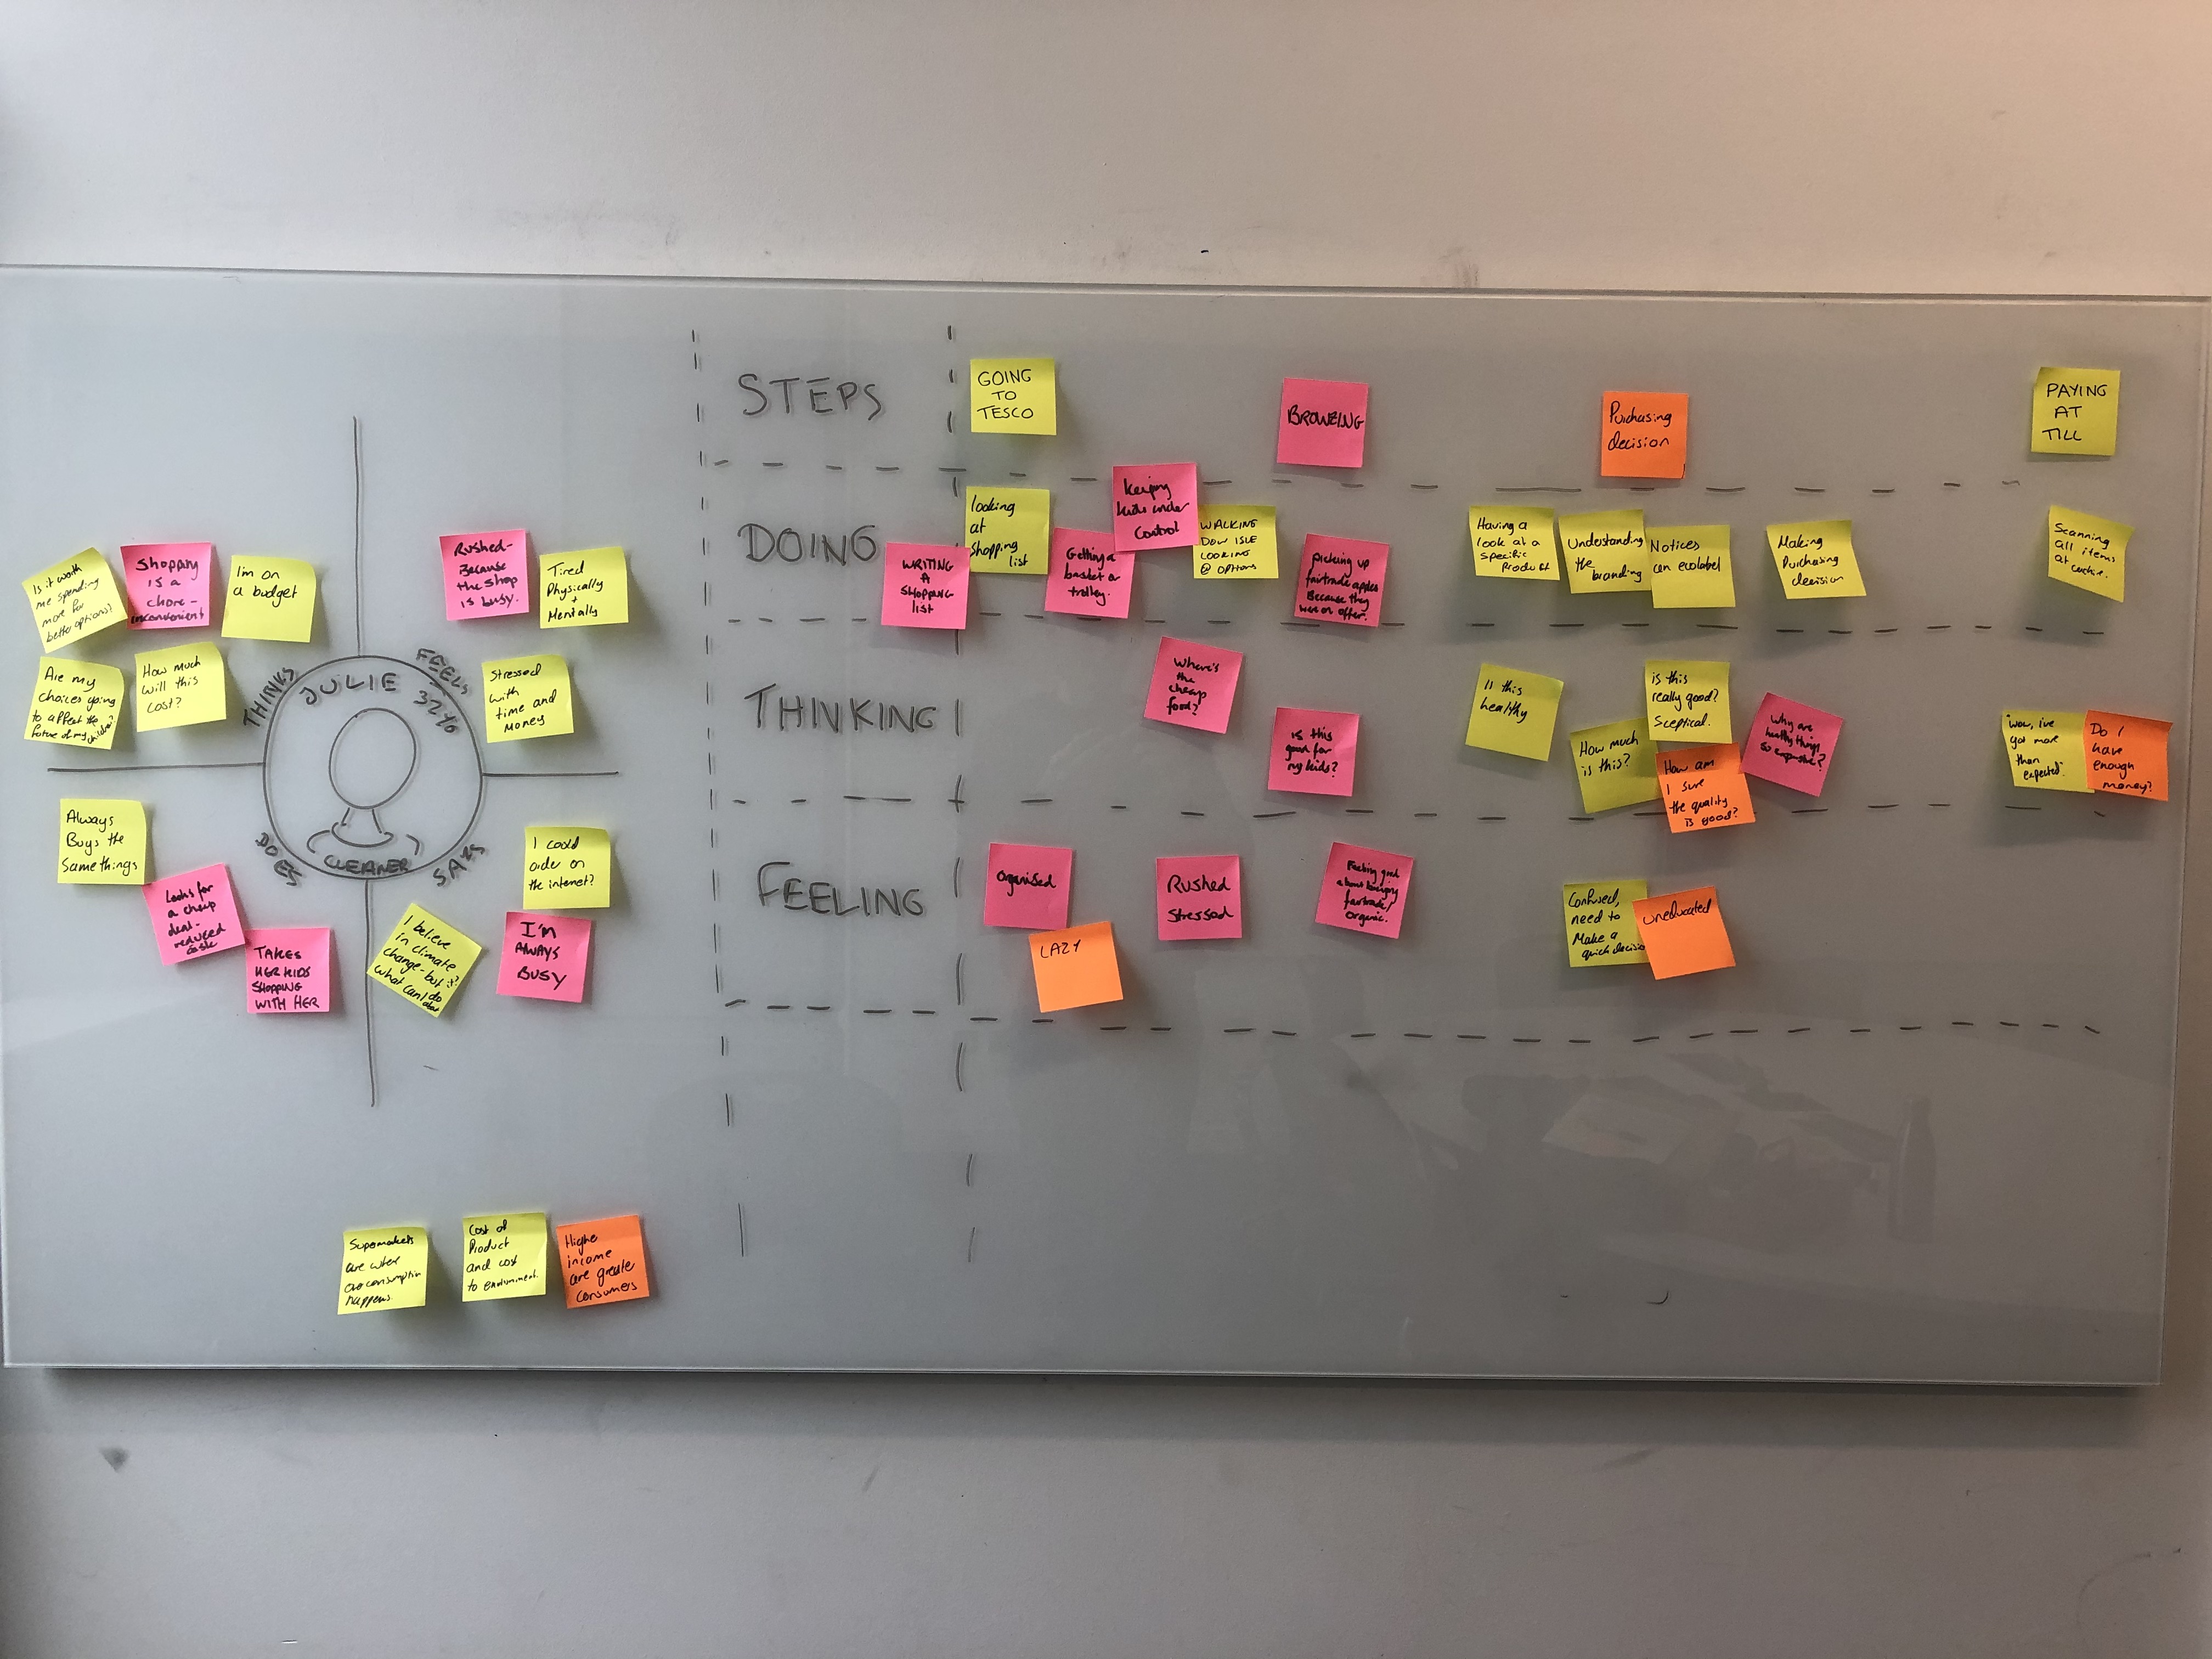 Is it worth
me spending
more for
better options?
Shopping
is a
chore-
inconvenient
I'm on
a budget
Are my
choices going
to affect the
future of my children?
How much
will this
cost?
Rushed-
Because
the shop
is busy.
Tired
Physically
+
Mentally
Stressed
with
time and
money
THINKS
FEELS
JULIE
32yo
CLEANER
DOES
SAYS
Always
Buys the
Same things
Looks for
a cheap
deal-
reduced
TAKES
HER KIDS
SHOPPING
WITH HER
I could
order on
the internet?
I believe
in climate
change-but
what can I do
about it?
I'm
ALWAYS
BUSY
Supermarkets
are where
overconsumption
happens.
Cost of
Product
and cost
to environment.
Highe
income
are greate
consumers
STEPS
GOING
TO
TESCO
BROWZING
Purchasing
decision
PAYING
AT
TILL
DOING
WRITING
A
SHOPPING
LIST
looking
at
shopping
list
Getting a
basket or
trolley.
Keeping
kids under
control
WALKING
DOW ISLE
LOOKING
@ OPTIONS
picking up
fairtrade apples
Because they
were on offer.
Having a
look at a
specific
Product
Understanding
the
branding
Notices
an ecolabel
Making
Purchasing
decision
Scanning
all items
at
THINKING
Where's
the
cheap
food?
is this
good for
my kids?
Is this
healthy
How much
is this?
is this
really good?
Sceptical.
How am
I sure
the quality
is good?
Why are
healthy things
so expensive?
"wow, ive
got more
than
expected"
Do I
have
enough
money?
FEELING
organised
LAZY
Rushed
stressed
Feeling good
about buying
fairtrade/
organic.
Confused,
need to
Make a
quick decision
uneducated